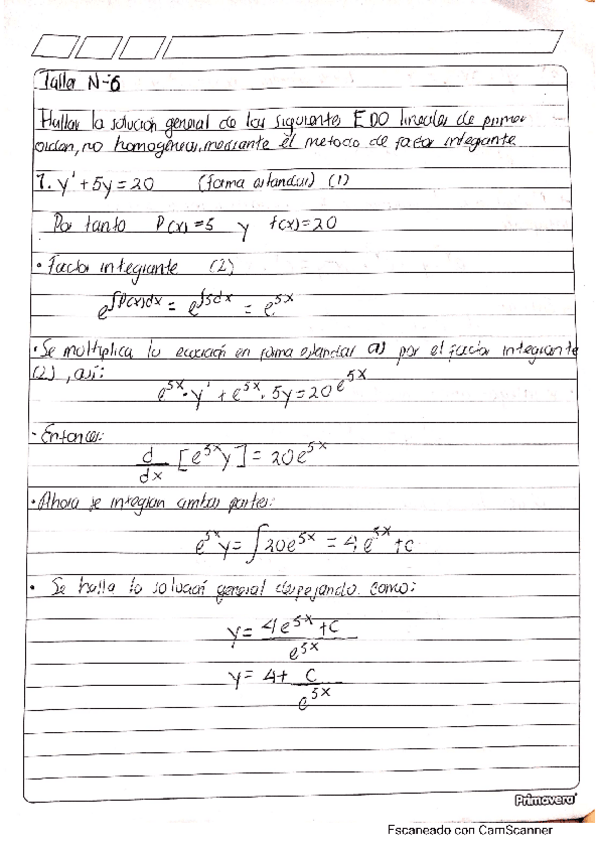 Taller N-6
Hallar la solución general de las siguientes EDO lineales de primer
orden, no homogéneas, mediante el metodo de factor integrante
1. y' + 5y = 20 (forma estandar) (1)
Por tanto P(x) = 5 y f(x) = 20
• Factor integrante (2)
e^∫P(x)dx = e^∫5dx = e^5x
• Se multiplica la ecuación en forma estandar (1) por el factor integrante
(2), así:
e^5x · y' + e^5x · 5y = 20 e^5x
• Entonces:
d/dx [e^5x y] = 20e^5x
• Ahora se integran ambas partes:
e^5x y = ∫20e^5x = 4e^5x + c
• Se halla la solución general despejando como:
y = (4e^5x + c)/e^5x
y = 4 + c/e^5x
Primavera
Escaneado con CamScanner